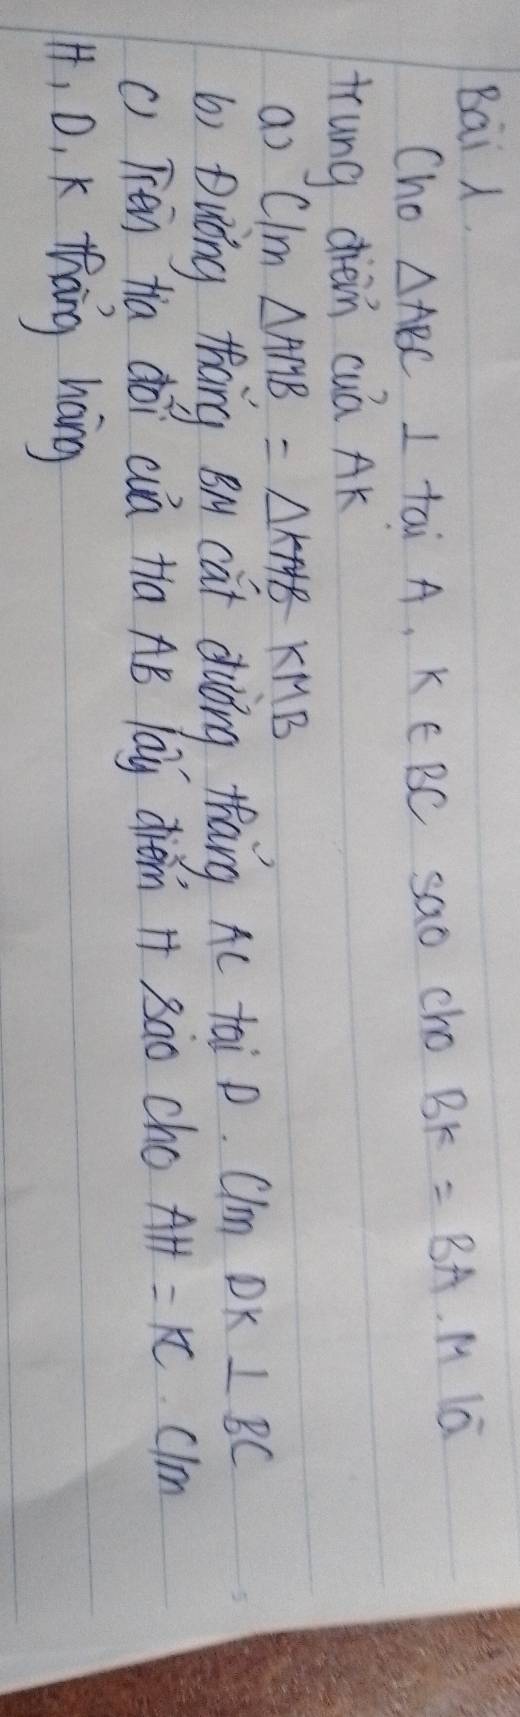 Bài 1.
Cho △ABC ⊥ tại A, K ∈ BC sao cho BK = BA. M là
trung điểm của AK
a) C/m △AMB = △KMB KMB
b) Đường thẳng BM cắt đường thẳng AC tại D. C/m DK ⊥ BC
c) Trên tia đối của tia AB lấy điểm H sao cho AH = KC. C/m
H, D, K thẳng hàng